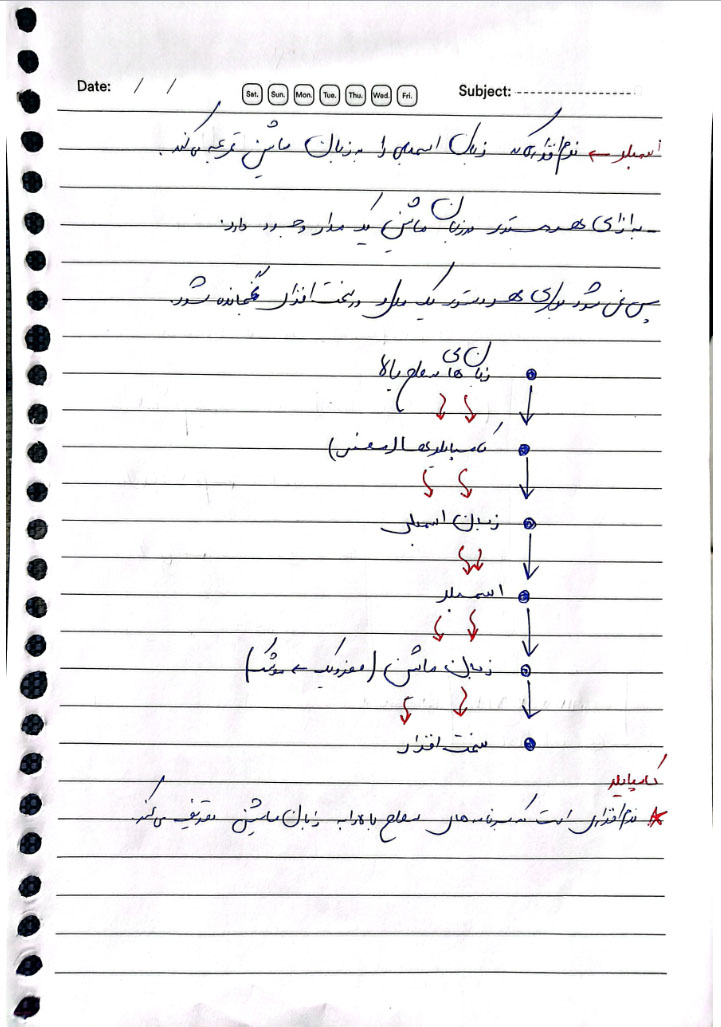 Date: / /
Sat. Sun. Mon. Tue. Thu. Wed. Fri.
Subject:
اسمبلر ← نرم‌افزاری که زبان اسمبلی را به زبان ماشین ترجمه می‌کند.
به ازای هر دستور در زبان ماشین یک مدار وجود دارد.
پس نمی شود برای هر دستور یک مدار در سخت افزار گنجانده شود.
زبان های سطح بالا
کامپایلرها
زبان اسمبلی
اسمبلر
زبان ماشین (صفر و یک ←
سخت افزار
کامپایلر
* نرم‌افزاری است که برنامه های سطح بالا را به زبان ماشین می‌کند.